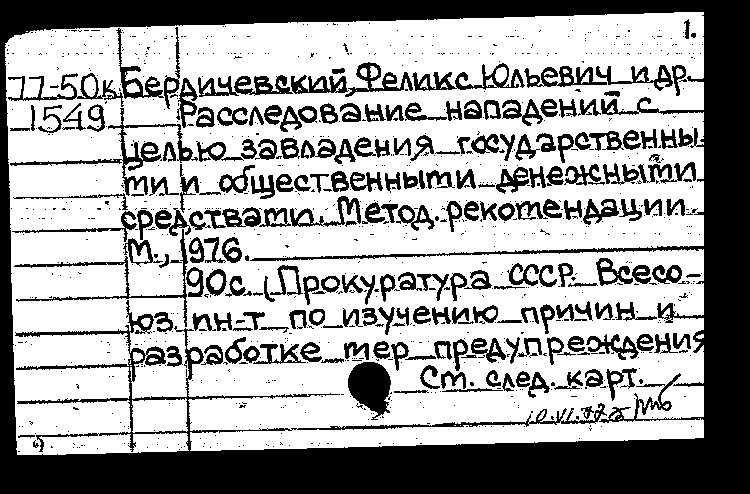 1.
77-50к Бердичевский, Феликс Юльевич и др.
1549 Расследование нападений с
целью завладения государственны-
ми и общественными денежными
средствами. Метод. рекомендации.
М., 1976.
90с. (Прокуратура СССР. Всесо-
юз. ин-т по изучению причин и
разработке мер предупреждения
См. след. карт.